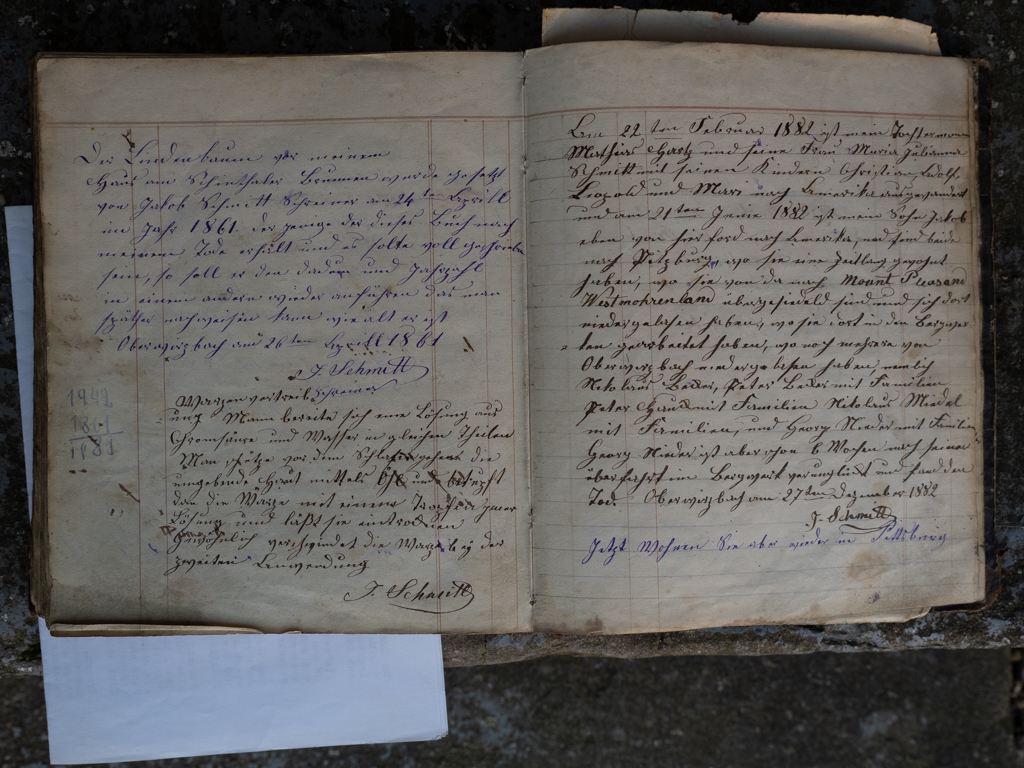 Der Lindenbaum vor meinem
Haus am Schinthaler Brunnen wurde gesetzt
von Jakob Schmitt Schreiner am 24 ten Aprill
im Jahr 1861. der jenige der dieses Buch nach
meinem Tode erhält und es solte voll geschrieben
sein, so soll er den dadum und Jahrzahl
in einem andern wieder anführen das man
später nachweisen kann wie alt er ist
Oberwürzbach am 26 ten Aprill 1861
J. Schmitt
Schreiner
Warzenvertreib
ung Mann bereite sich eine Lösung aus
Chromsäure und Wasser in gleichen Theilen
Man schütze vor dem Schlafengehen die
umgebende Haut mittels Öhl und betupft
dan die Warze mit einem Tropfen jener
Lösung und läßt sie eintrocknen
Gewöhnlich verschwindet die Warze bey der
zweiten Anwendung
J. Schmitt
1942
1861
1881
Am 22 ten Februar 1882 ist mein Tochtermann
Mathias Hartz und seine Frau Maria Julianna
Schmitt mit seinen Kindern Christian, Adolf,
Leopold und Mari nach Amerika ausgewandert
und am 21ten Junie 1882 ist mein Sohn Jakob
eben von hier ford nach Amerika, und sind beide
nach Pitzburg, wo sie eine Zeitlang gewohnt
haben, wo sie von da nach Mount Pleasand
Westmohrenland übergesiedeld sind und sich dort
niedergelasen haben, wo sie dort in den Bergwer-
ken gearbeitet haben, wo noch mehrere von
Oberwürzbach niedergelasen haben nemlich
Nikolaus Becker, Peter Becker mit Familien
Peter Hauck mit Familien Nikolaus Miedel
mit Familien, und Georg Nieder mit Familien
Georg Nieder ist aber schon 6 Wochen nach seiner
überfahrt im Bergwerk verunglückt und fand den
Tod. Oberwürzbach am 27ten Dezember 1882
J. Schmitt
Jetzt Wohnen Sie aber wieder in Pittsburg